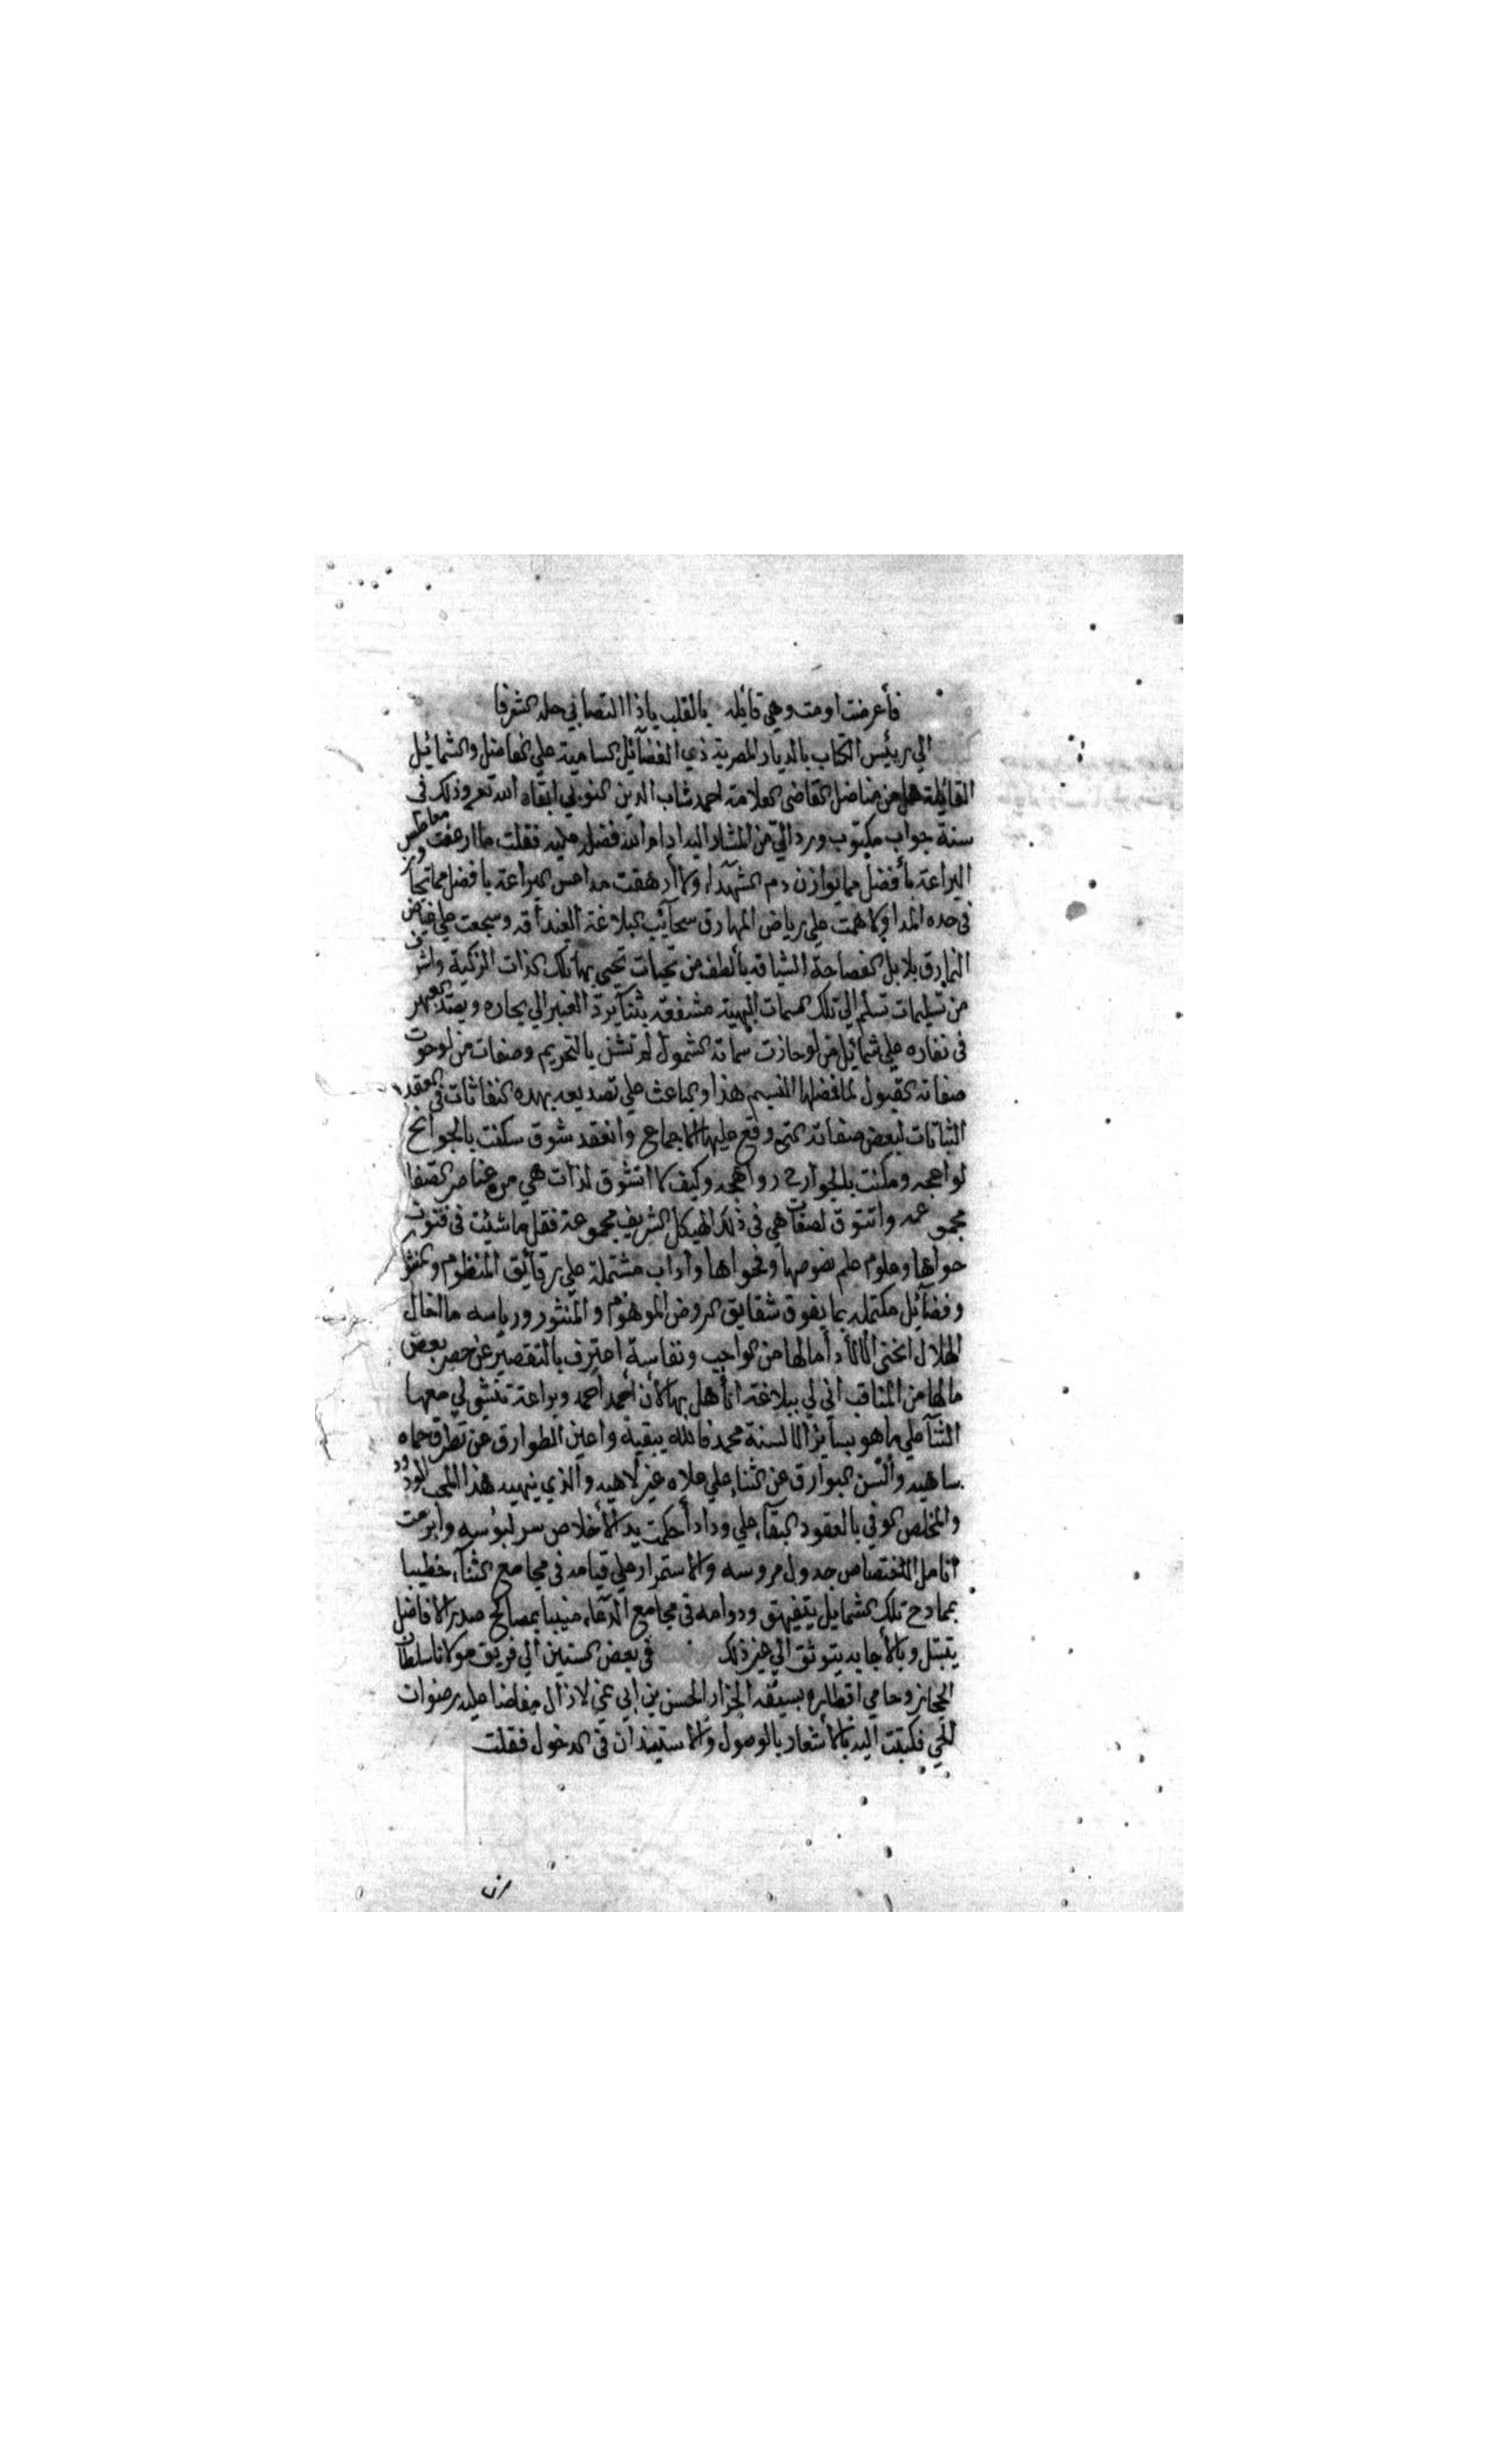 فأعرضت اومت وهي قايله بالقلب ياذا التصابي حله الشرفا
الي رئيس الكتاب بالديار المصرية ذي الفضآئل السامية علي الفاضل والشمائيل
القائيلة هل من مناضل القاضى العلامة احمد شاب الدين النوبي ابقاه الله تعم وذلك فى
سنة جواب مكتوب ورد الي من المشار اليه ادام الله فضل عليه فقلت ما ارعفت معاطس
اليراعة بأفضل مما يوازن دم الشهدآء ولا أدهقت مداعس اليراعة بافضل مما تجاكر
فى حده المدا ولا همت علي رياض المهارق سحآئب البلاغة الغيداقه وسجعت علي غياض
النمارق بلابل الفصاحة الشياقه بألطف من تحيات تحيى بها تلك الذات الزكية واشرف
من تسليمات تسلم الي تلك السمات البهية مشفقه بثنآ يردّ العنبر الي بحاره ويصد العبهر
فى نفاره علي شمائيل من لو حازت سماته الشمول لم تشن بالتحريم وصفات من لو حوت
صفاته القبول لما فضلها النسيم هذا والباعث علي تصديعه بهده النفاثات فى العقد
الثباتات لبعض صفاته التى وقع عليها الاجماع وانعقد شوق سكنت بالجوانح
لواعجه ومكنت بالجوارح رواهجه وكيف لا اتشوق لذات هي من عناصر الصفا
مجموعه واتتوق لصفات هي فى ذلك الهيكل الشريف مجموعة فقل ما شئت فى فنون
حواها وعلوم علم نصوصها وفحواها واداب مشتملة علي رقائق المنظوم والمنثور
وفضآئيل مكتمله بما يفوق شقايق الروض الموهوم والمنثور ورياسه ما اخال
الهلال انحنى الا لأدأ مالها من الواجب ونفاسة اعترف بالتقصير عن حصر بعض
مالها من المناقب انى لي ببلاغة اتأهل بها لأن أحمد أحمد وبراعة تتشق لي معها
الثنآ علي ما هو بساير الالسنة محمد فالله يبقيه واعين الطوارق عن تطرق حماه
ساهيه وألسن البوارق عن الثناء علي علاه غير لاهيه والذي ينهيه هذا المحب الودود
والمخلص الوفي بالعقود البقآء علي وداد أحكمت يد الأخلاص سر لبوسه وابرمت
انامل الاختصاص جدول مروسه والاستمرار علي قيامه فى مجامع الثنآء خطيبا
بمادح تلك الشمايل يتفيهق ودوامه فى مجامع الدعآء منيبا بمصالح صدر الافاضل
يتبتل وبالأجابه يتوثق الي غير ذلك فى بعض السنين الي فريق مولانا سلطان
الحجاز وحامي اقطاره بسيفه الجزار الحسن بن ابي نمي لازال مفاضا عليه رضوان
للحي فكتبت اليه بالأشعار بالوصول والاستيذان فى الدخول فقلت